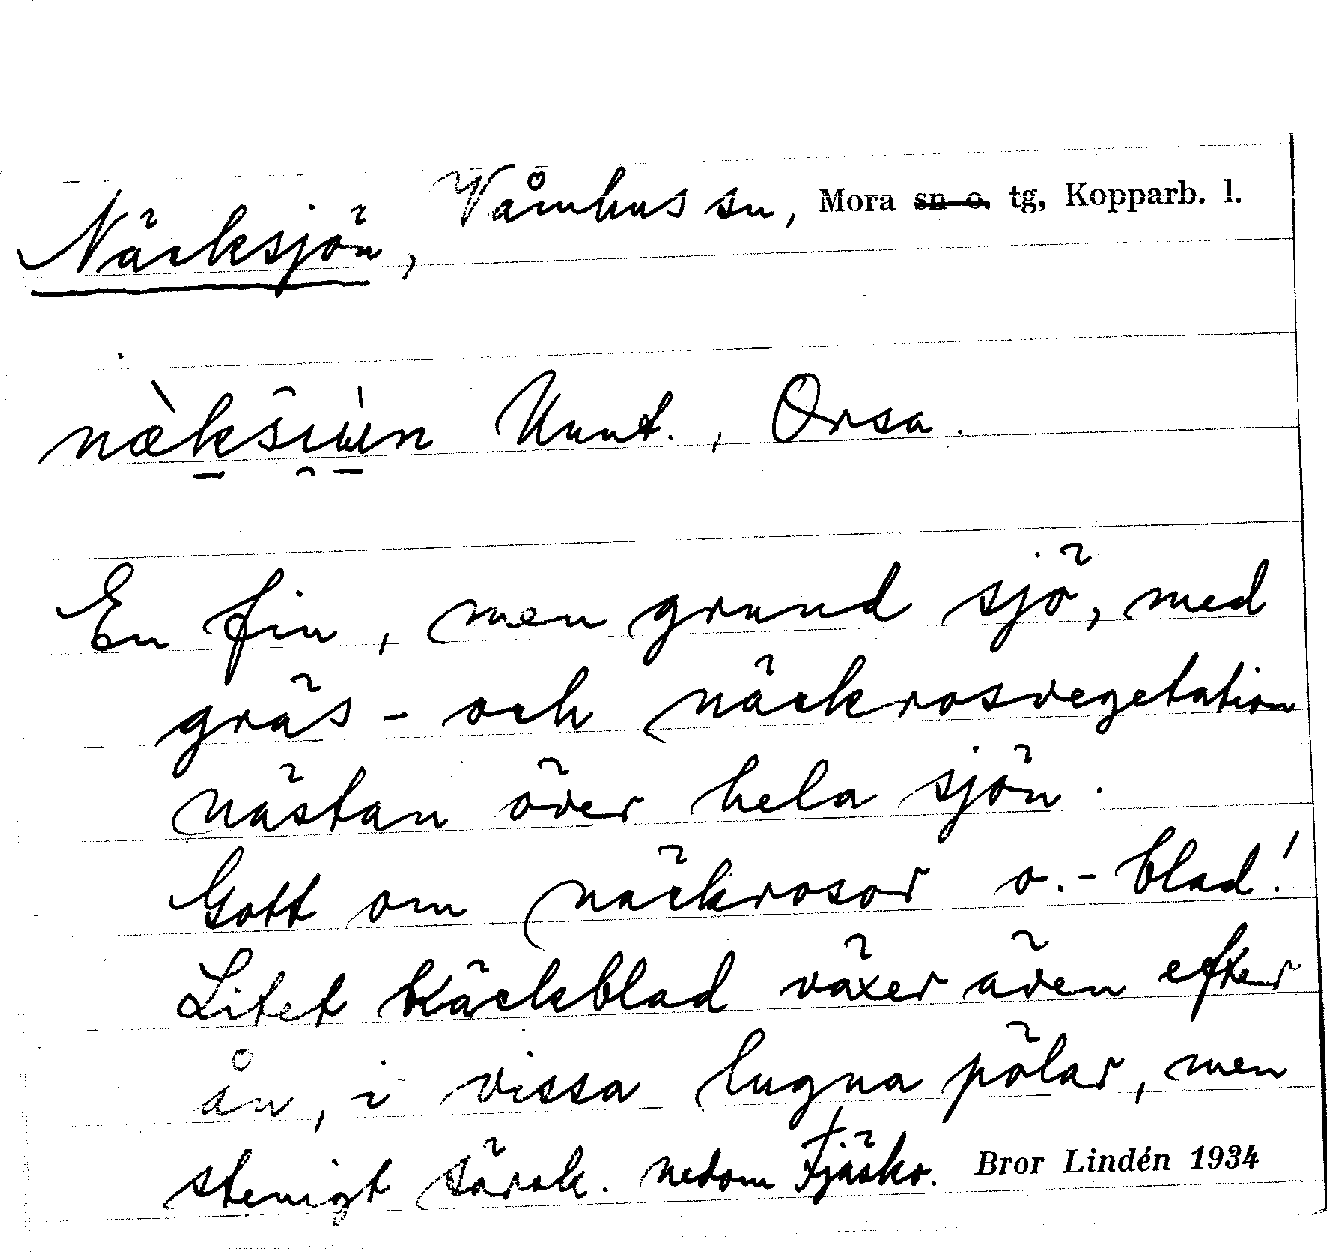 Näcksjön, Våmhus sn, Mora sn o. tg, Kopparb. l.
Orsa.
En fin, men grund sjö, med
gräs- och näckrosvegetation
nästan över hela sjön.
Gott om näckrosor o. -blad!
Litet bäckblad växer även efter
ån, i vissa lugna pölar, men
stenigt särsk. nedom Fjäsko. Bror Lindén 1934